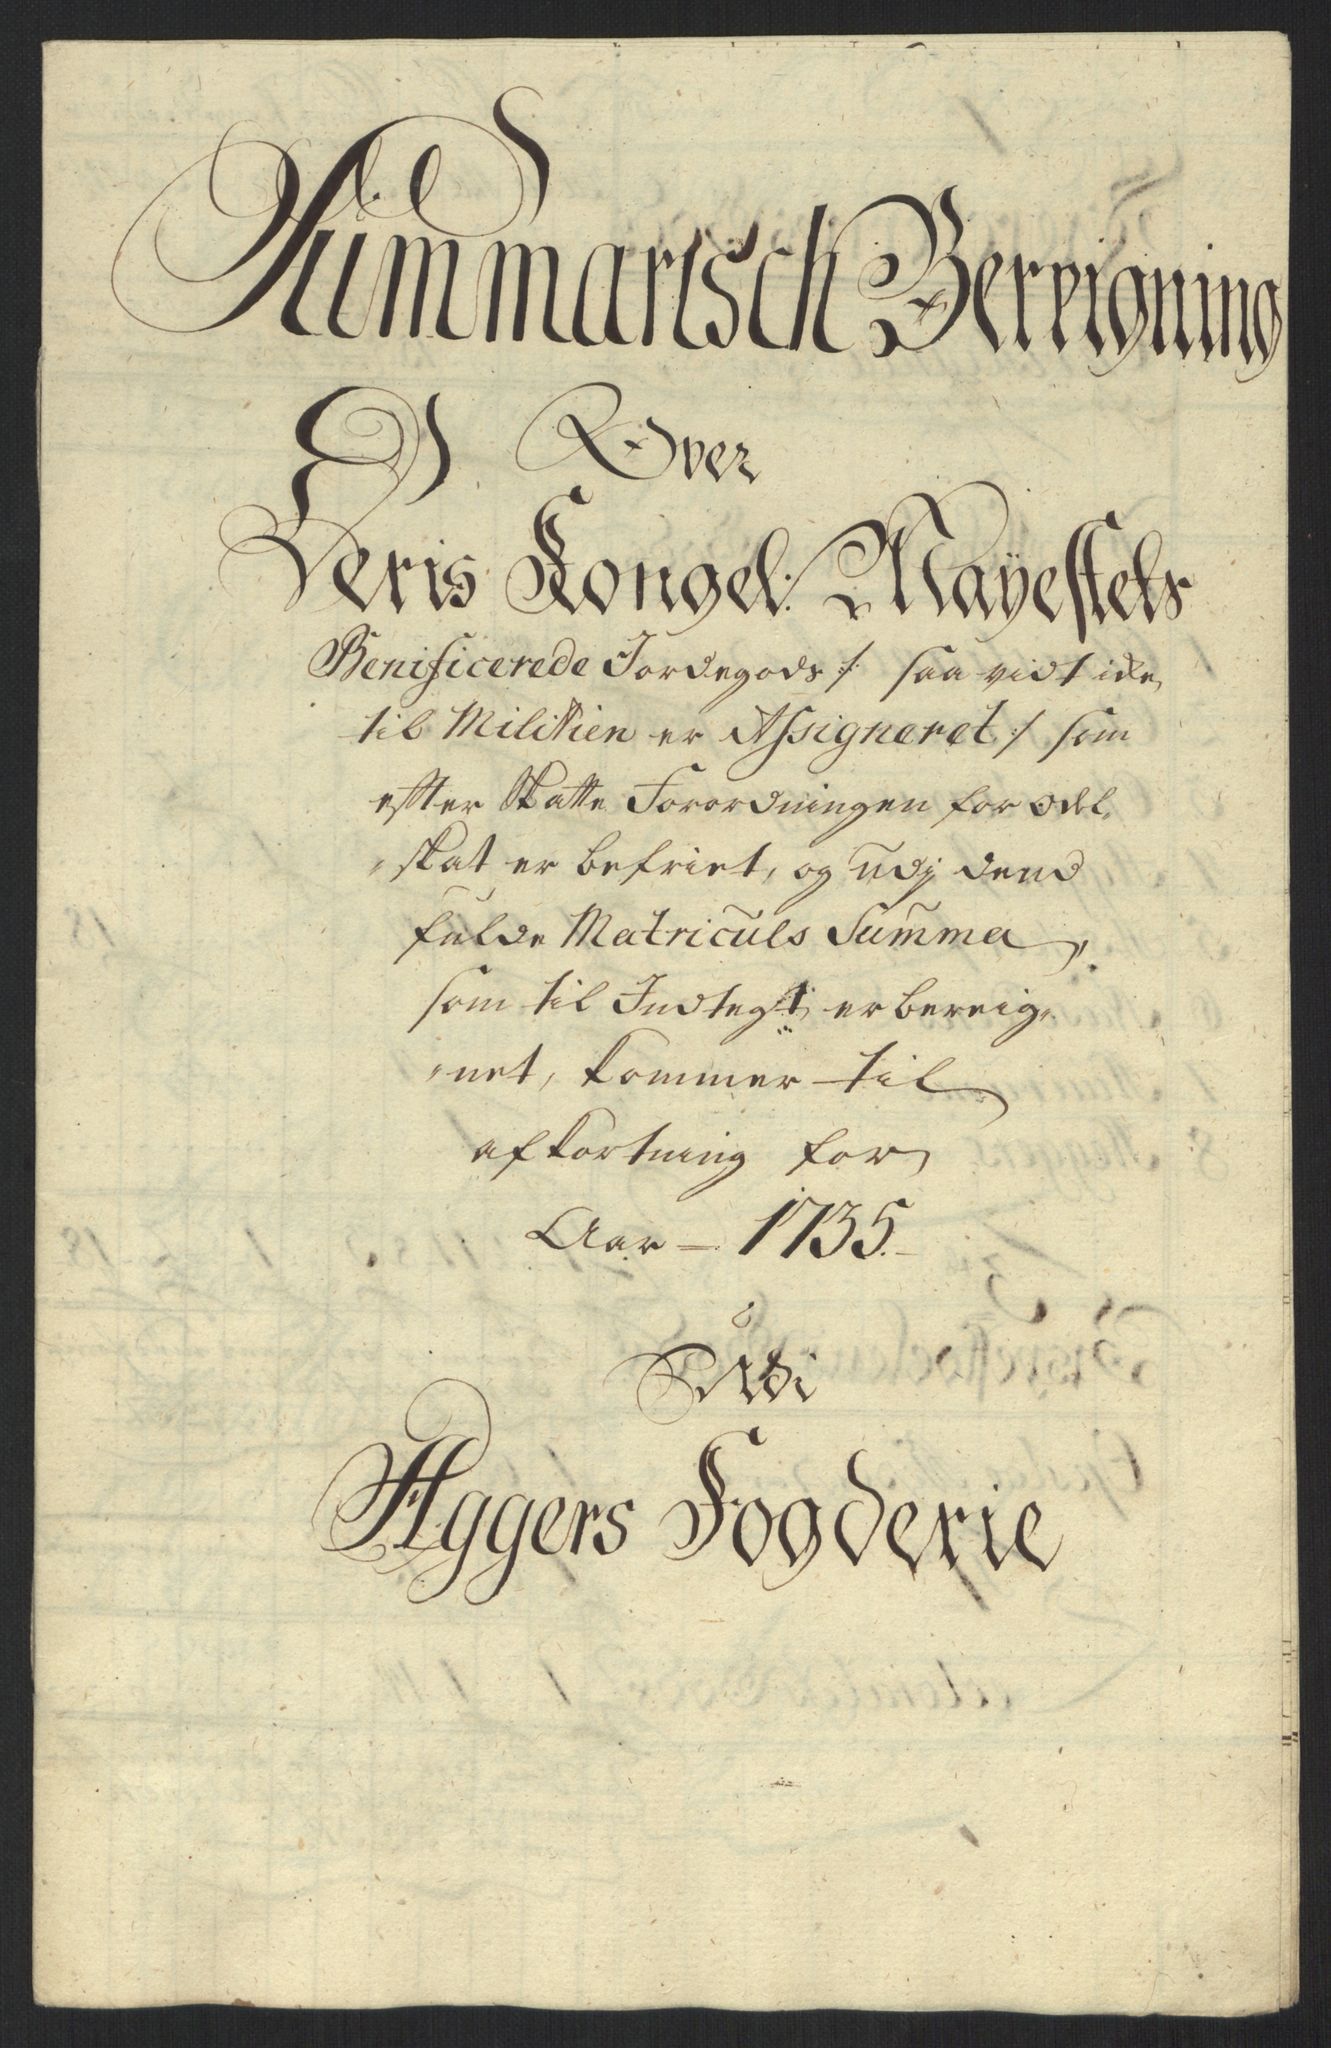 Summarisch Bereigning
Over
Deris Kongel: Mayestets
Benificerede Jordegods :/ saa vidt icke
til Militien er Assigneret :/ som
effter Skatte Forordningen for odel,
"skat er befriet, og udj dend
fulde Matriculs Summa,
som til Indtegt er bereig,,
"net, kommer til
afkortning for
Aar - 1735.-
Udi
Aggers Fogderie